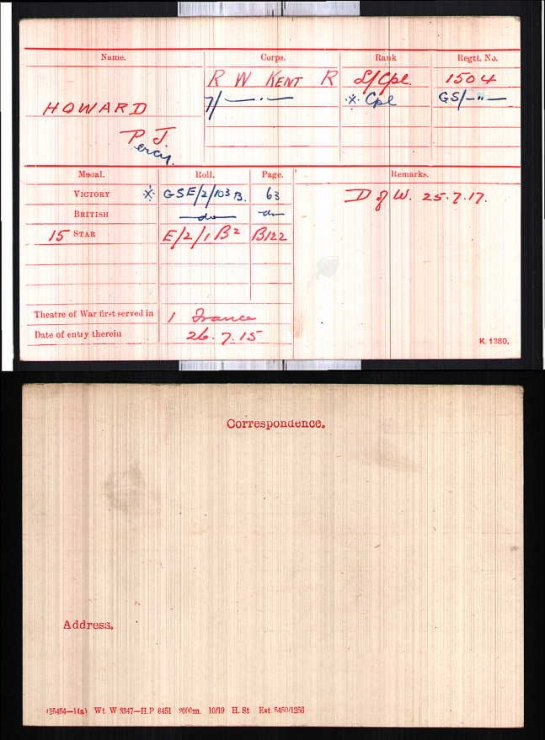 Name. Corps. Rank Regtl. No.
R W KENT R L/Cpl. 1504
HOWARD 7/ —·— ※ Cpl GS/—"—
P. J.
ercy.
Medal. Roll. Page. Remarks.
VICTORY ※ GSE/2/103 B. 63 D of W. 25.7.17.
BRITISH —do— —do—
15 STAR E/2/1 B² B122
Theatre of War first served in 1 France
Date of entry therein 26.7.15
K 1380.
Correspondence.
Address.
(25454—14a) Wt. W 3347—H.P 6451 2000m. 10/19 H. St Est